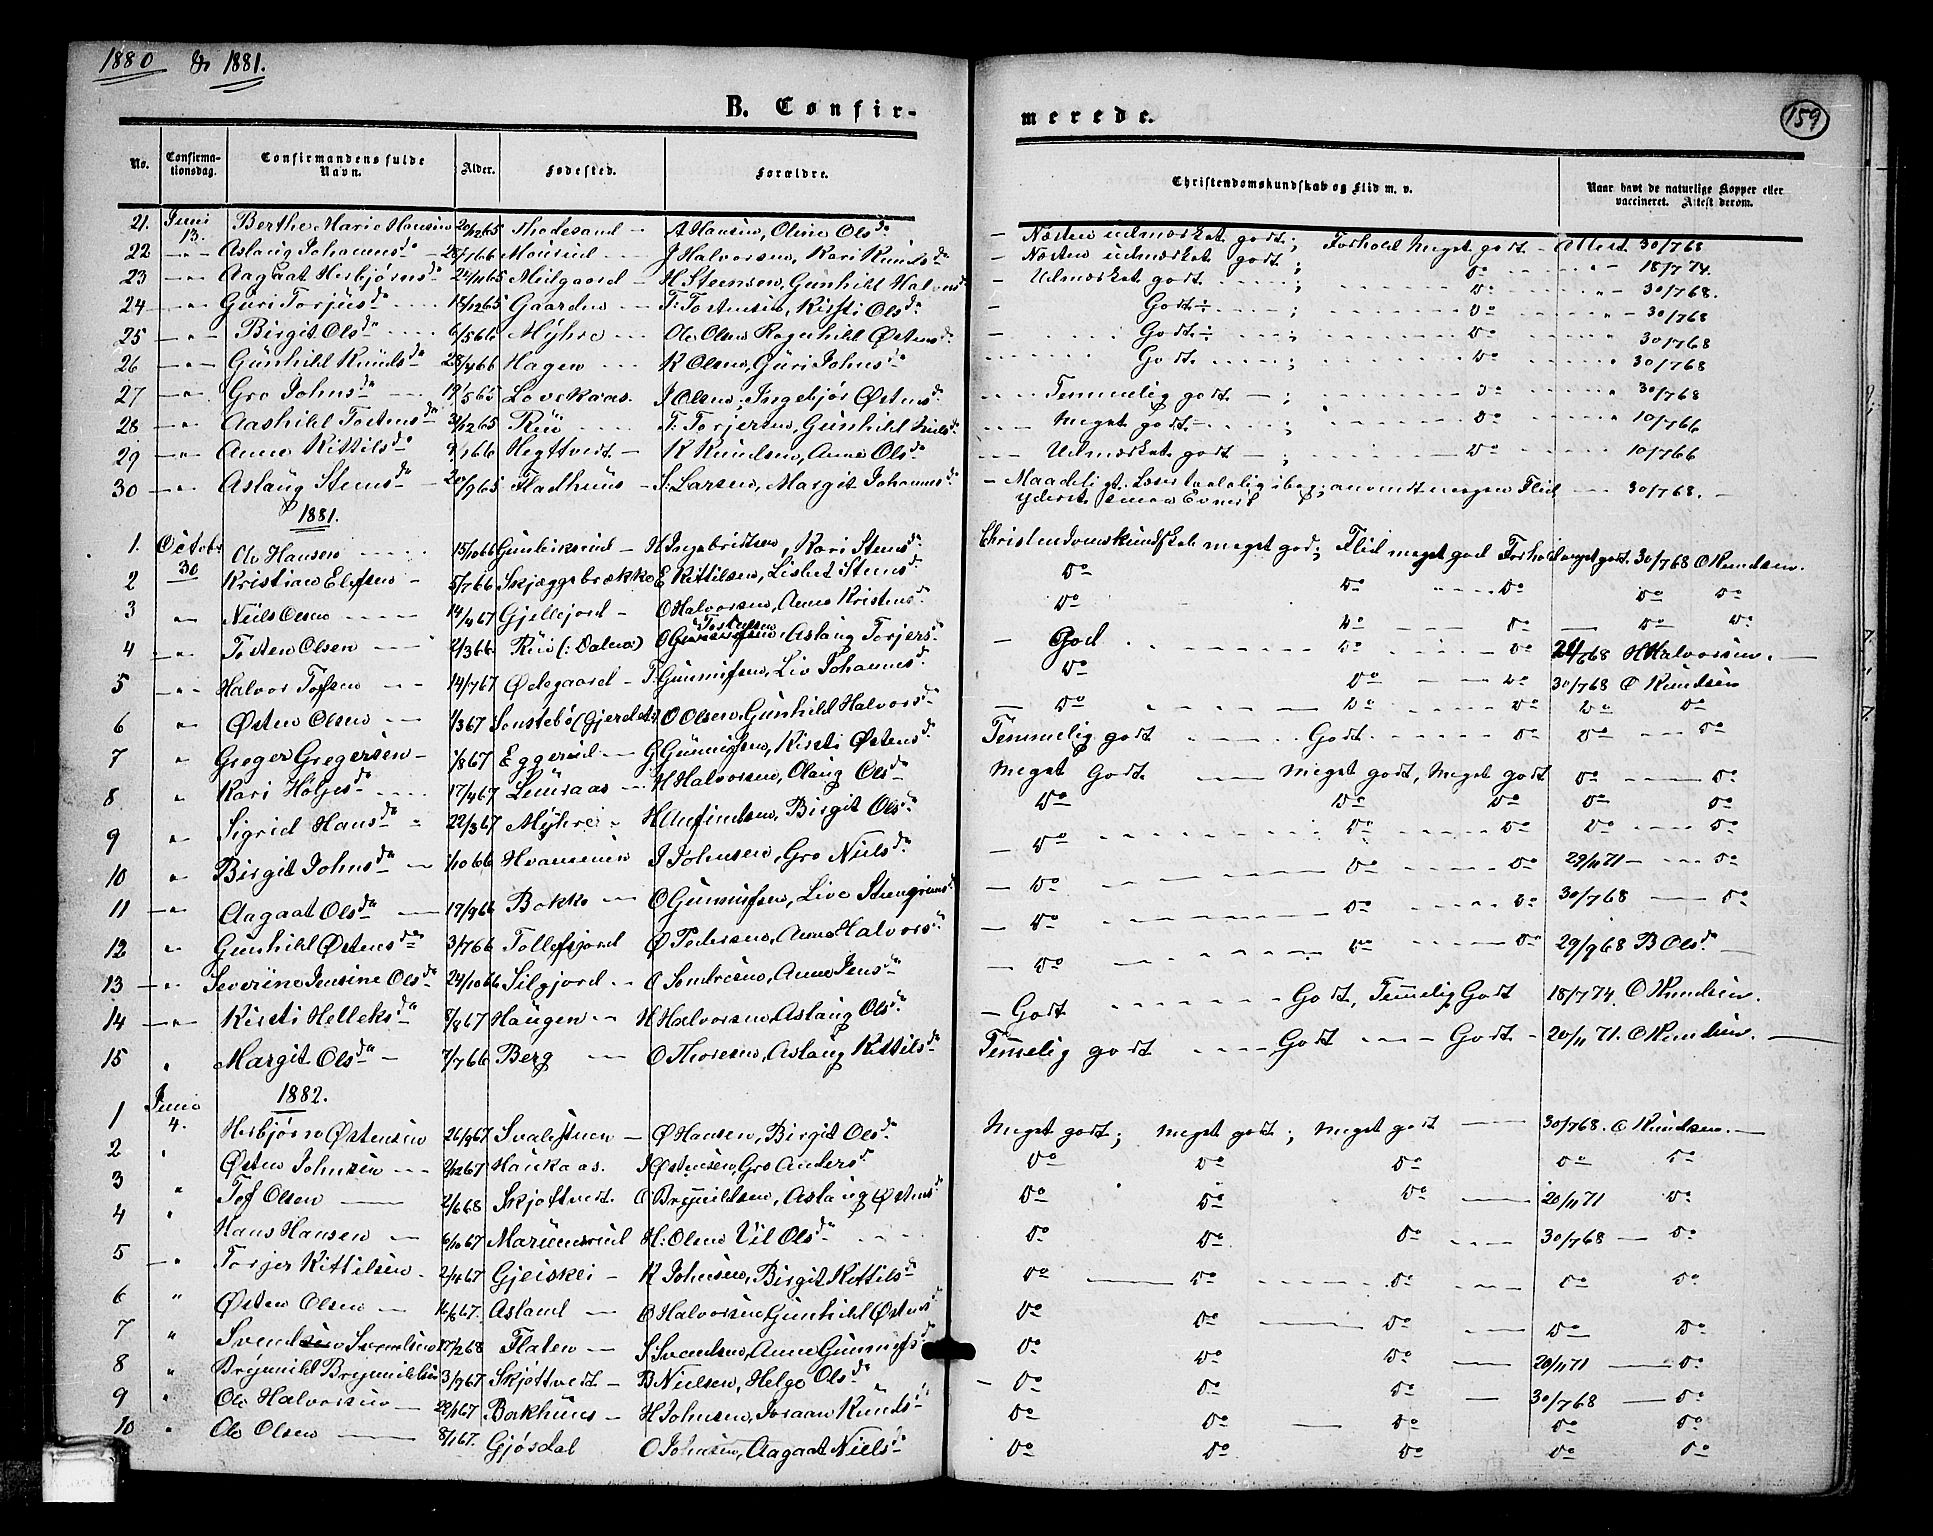 1880 & 1881.
B. Confirmerede.
159
No. Confirmationsdag. Confirmandens fulde Navn. Alder. Fødested. Forældre. Christendomskundskab og Flid m. v. Naar havt de naturlige Kopper eller vaccineret. Attest derom.
21. Juni 13. Berthe Marie Hansen 20/12 65 A Hansen, Oline Olsda — Næsten udmærket godt; Forhold Meget godt - Attest 30/768
22 — " — Aslaug Johannesda — J Halvorsen, Kari Knudsda — Næsten udmærket godt; do " 18/774.
23 — " — Aagaat Herbjørnsda Meilgaard — H Steensen, Gunhild Halvorsda — Udmærket godt; do " 30/768.
24 — " — Guri Torjusda 18/12 65 Gaarden — T: Tostensen, Kirsti Olsda — Godt ÷; do " 30/768
25 — " — Birgit Olsda 6/5 66 Myhre Ole Olsen Ragnhild Østensda — Godt ÷; do 30/768
26 — " — Gunhild Knudsda 28/4 66 Hagen K Olsen, Guri Johnsda Godt; do " 30/768
27 — " — Gro Johnsda 19/5 65 Lovekaas. J Olsen, Ingebjør Østensda Temmelig godt —; do " 30/768
28 — " — Aashild Tostensda 31/12 65 Rui T: Torjersen, Gunhild Nielsda Meget godt; do " 10/766
29 — " — Anne Kittilsda 9/1 66 Hegttvedt — K Knudsen, Anne Olsda Udmærket godt —; do 10/766
30 — " — Aslaug Stensda — 20/9 65 Fladhuus — S. Larsen, Margit Johannesda — Maadeligt. Læser taalelig i bog; anvendt megen Flid 30/768. —
yderst smaa Evner
1881.
1. Octobr 30 Ole Hansen 15/10 66 H Ingebridtsen, Kari Stensda Christendomskundskab meget god; Flid meget god Forhold meget godt. 30/768 O Knudsen.
2 Kristian Elefsen 5/7 66 Skjæggebrække E Kittilsen, Lisbet Stensda do do do do do
3 " Niels Olsen 14/4 67 Gjellejord — O Halvorsen, Anne Kristensda do do do do do
4 — " — Tosten Olsen 2/3 66 Rui (: Dalene) O Tostensen Aslaug Torjersda — God do do 24/668 H Halvorsen.
5 — " — Halvor Tofsen 14/7 67 Ødegaard — T. Gunnulfsen, Liv Johannesda do do do 30/768 O Knudsen
6 " Østen Olsen 1/3 67 Sønstebø (Gjerdet) O Olsen, Gunhild Halvorsda — do do do do do
7 " Greger Gregersen — 1/8 67 Eggerud — G Gunnulfsen, Kirsti Østensda Temmelig godt Godt do do do
8 " Kari Holjesda 17/4 67 Luuraas H Halvorsen, Olaug Olsda Meget Godt meget godt, Meget godt do do
9 " Sigrid Hansda 22/3 67 Myhre H Anfindsen, Birgit Olsda do do do do do
10 " Birgit Johnsda 1/10 66 J Johnsen, Gro Nielsda — do do do do do
11 — " — Aagaat Olsda 17/9 66 Bakke — O Gunnulfsen, Live Stengrimsda — do do do 29/11 71 — do
12 " Gunhild Østensda 3/7 66 Tollefsjord Ø Pedersen, Anne Halvorsda — do do do 30/768 do
13 — " — Severine Jensine Olsda 24/10 66 Silgjord O Sondresen, Anne Jensda — do do do 29/968 B Olsda —
14 — " — Kirsti Helleksda 8/8 67 Haugen — H Halvorsen, Aslaug Olsda — Godt Godt, Temmelig Godt 18/774. O Knudsen.
15 " Margit Olsda — 7/7 66 Berg O Thoresen, Aslaug Kittilsda Temmelig godt Godt Godt — 20/11 71. O Knudsen.
1882.
1 Juni 4. Herbjørn Østensen 26/9 67 Svalestuen — Ø Hansen, Birgit Olsda Meget godt; meget godt; meget godt 30/768. O Knudsen. —
2 " Østen Johnsen 2/12 67 Haukaas. J Østensen, Gro Andersd do do do do do
3 " Tof Olsen 2/6 68 Skjøttvedt. O Brynildsen, Aslaug Østensda do do do 20/11 71 do
4 " Hans Hansen — 6/10 67 H: Olsen Vil Olsda do do do 30/768 — do
5 — " Torjer Kittilsen — 2/4 67 Gjeiskei — K Johnsen, Birgit Kittilsda do do do do do
6 " Østen Olsen — 16/6 67. Asland — O Halvorsen Gunhild Østensda do do do do do
7 " Svend Svendsen 17/2 68 Flaten — S Svendsen, Anne Gunnulfsda do do do 20/11 71 do
8 " Brynild Brynildsen 3/9 67 Skjøttvedt — B Nielsen, Helge Olsda — do do do 30/768 — do
9 " Ole Halvorsen — Bakhuus — H Johnsen, Joraan Knudsda do do do do do
10 " Ole Olsen 8/1 67. Gjøsdal O Johnsen, Aagaat Nielsda do do do do do